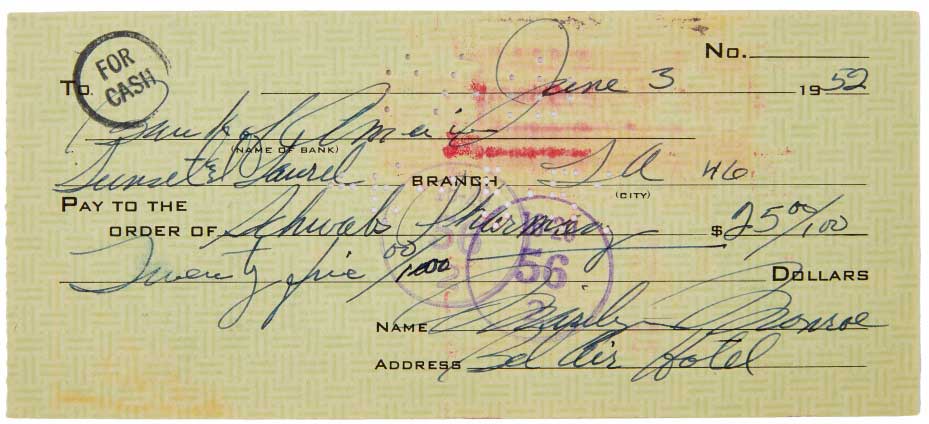 FOR CASH
No.
To June 3 1952
Bank of America
(NAME OF BANK)
Sunset & Laurel BRANCH LA 46
(CITY)
PAY TO THE
ORDER OF Schwabs Pharmacy $25 00/100
Twenty five 00/100 DOLLARS
56
NAME Marilyn Monroe
ADDRESS Bel Air Hotel